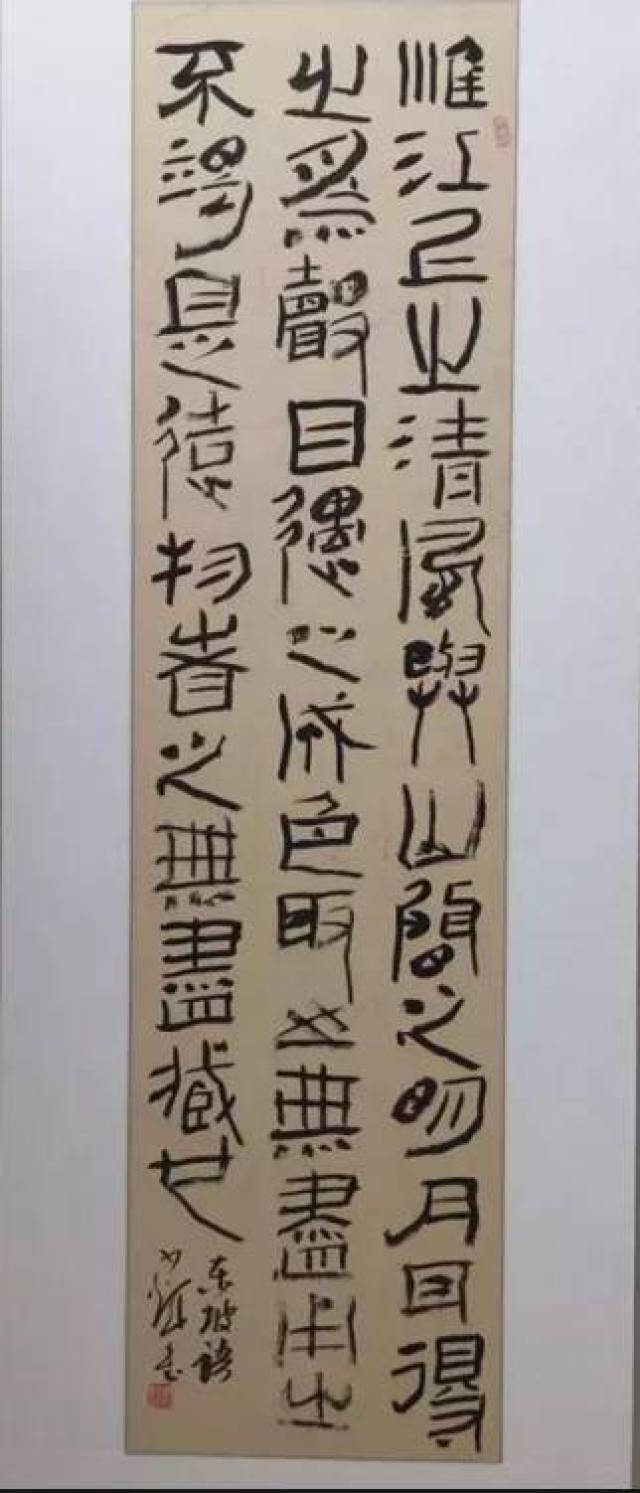 惟江上之清風與山間之明月耳得
之為聲目遇之成色取之無盡用之
不竭是造物者之無盡藏也
東坡語